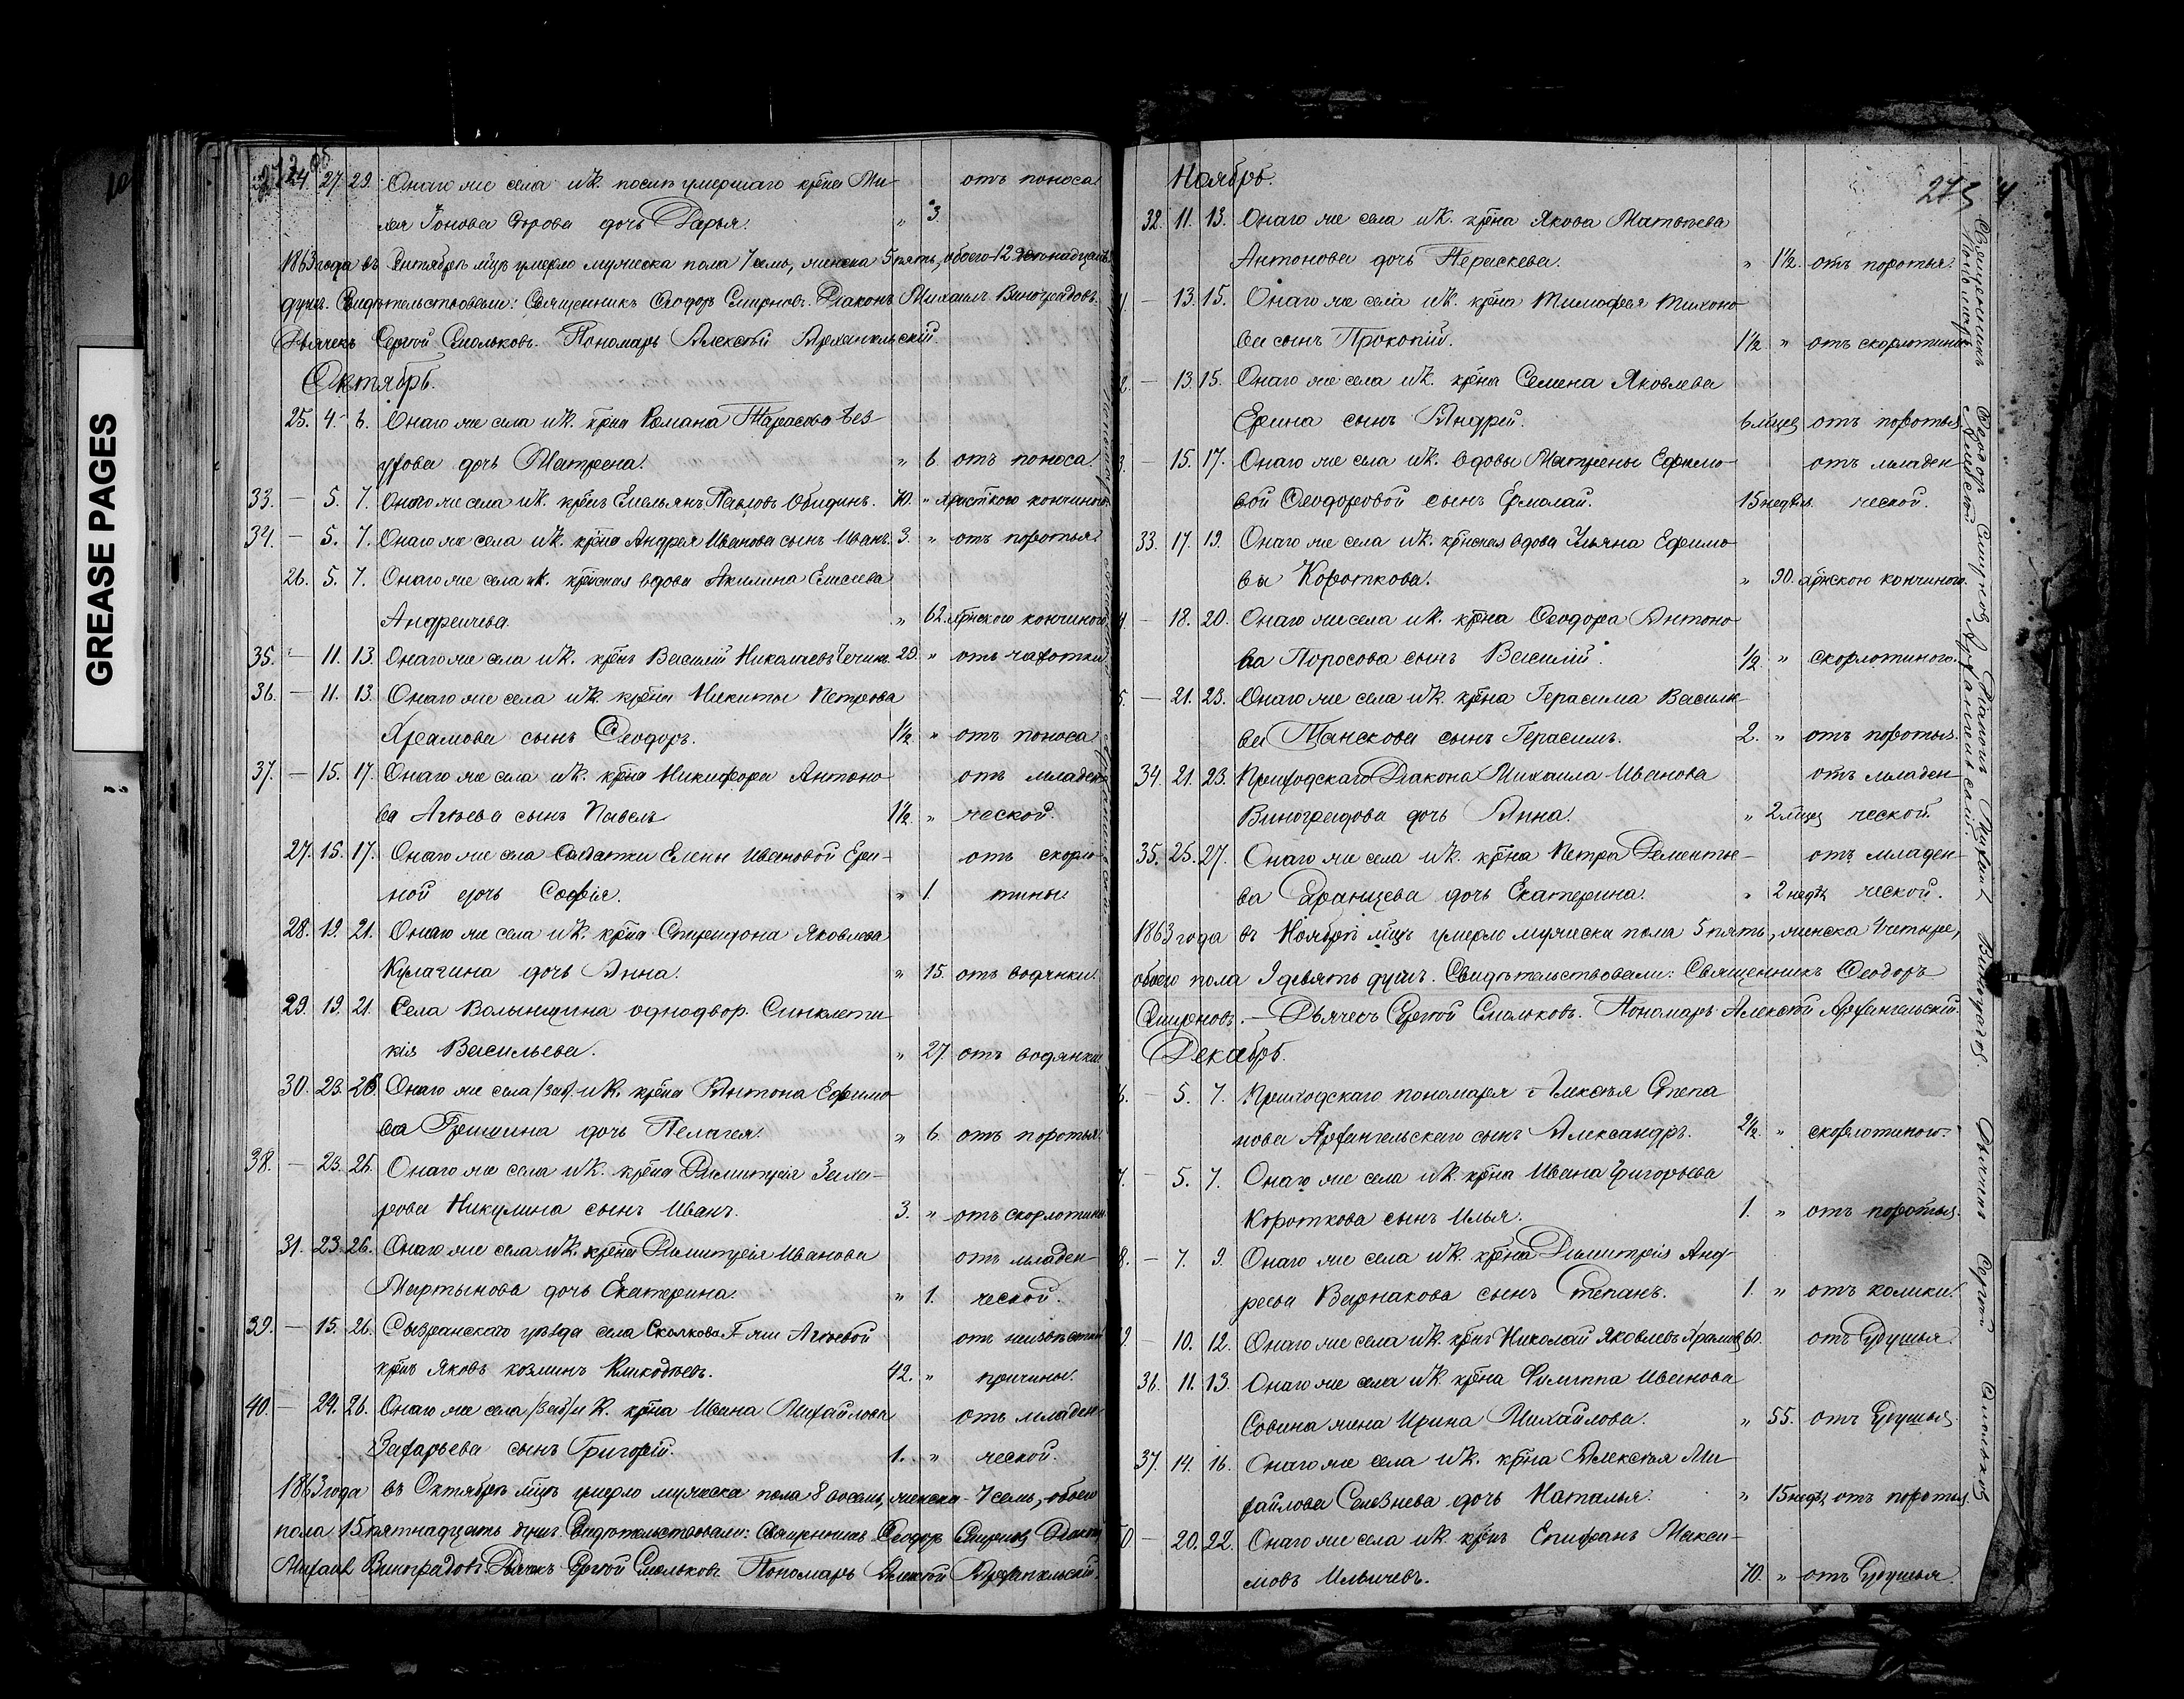 GREASE PAGES
24. 27. 29. Онаго же села и К. послѣ умершаго крѣна Ми- отъ поноса.
хея Іонова дочь Дарья. " 3
1863 года въ Сентябрѣ мцѣ умерло мужеска пола 7 семь, женска 5 пять, обоего 12
душъ. Свидѣтельствовали: Священникъ Ѳеодоръ Смирновъ. Діаконъ Михаилъ Виноградовъ.
Дьячекъ Сергѣй Смольковъ. Пономарь Алексѣй Архангельскій.
Октябрь.
25. 4. 6. Онаго же села и К. крѣна Романа Тарасова Без-
дочь Матрена. " 6. отъ поноса.
33. — 5. 7. Онаго же села и К. крѣнъ Емельянъ Павловъ Обидинъ. 70. " кончиною.
34. — 5. 7. Онаго же села и К. крѣна Андрея Иванова сынъ Иванъ. 3. " отъ поротья.
26. 5. 7. Онаго же села и К. крѣнская вдова Акилина Елисеева
Андреичева. " 62. хрнскою кончиною.
35. — 11. 13. Онаго же села и К. крѣнъ Василій Николаевъ 29. " отъ чахотки.
36. — 11. 13. Онаго же села и К. крѣна Никиты Петрова
Храмова сынъ Ѳеодоръ. 1½ " отъ поноса.
37. — 15. 17. Онаго же села и К. крѣна Никифора Антоно- отъ младен-
ва Агѣева сынъ Павелъ 1½. " ческой.
27. 15. 17. Онаго же села солдатки Елены Ивановой Ери- отъ скорло-
ной дочь Софія. " 1. тины.
28. 19. 21. Онаго же села и К. крѣна Спиридона Яковлева
Кулагина дочь Анна. " 15. отъ водянки.
29. 19. 21. Села Волынщина однодвор. Синклети-
кія Васильева. " 27. отъ водянки.
30. 23. 26. Онаго же села и К. крѣна Антона Ефимо-
ва Гришина дочь Пелагея. " 6. отъ поротья.
38. — 23. 26. Онаго же села и К. крѣна Димитрія Заха-
рова Никулина сынъ Иванъ. 3. " отъ скорлотины.
31. 23. 26. Онаго же села и К. крѣна Димитрія Иванова отъ младен-
Мартынова дочь Екатерина. " 1. ческой.
39. — 15. 26. Сызранскаго уѣзда села отъ неизвѣстной
крнъ Яковъ козминъ 42. " причины.
40. — 24. 26. Онаго же села и К. крѣна Ивана Михайлова отъ младен-
Захарьева сынъ Григорій. 1. " ческой.
1863 года въ Октябрѣ мцѣ умерло мужеска пола 8 восемь, женска 7 семь, обоего
пола 15 пятнадцать душъ. Свидѣтельствовали: Священникъ Ѳеодоръ Смирновъ Діаконъ
Михаилъ Виноградовъ. Дьячекъ Сергѣй Смольковъ. Пономарь Алексѣй Архангельскій.
Ноябрь.
32. 11. 13. Онаго же села и К. крѣна Якова Матвѣева
Антонова дочь Параскева. " 1½. отъ поротья.
— 13. 15. Онаго же села и К. крѣна Тимофея Тихоно-
ва сынъ Прокопій. 1½ " отъ скорлотины.
— 13. 15. Онаго же села и К. крѣна Семена Яковлева
Ерина сынъ Андрей. 6 мцев отъ поротья.
— 15. 17. Онаго же села и К. вдовы Матрены Ефимо- отъ младен-
вой Ѳеодоровой сынъ Ермолай. 15 недѣль. ческой.
33. 17. 19. Онаго же села и К. крѣнская вдова Ульяна Ефимо-
ва Короткова. " 90. хрнскою кончиною.
— 18. 20. Онаго же села и К. крѣна Ѳеодора Антоно-
ва Поросова сынъ Василій. ½. " скорлотиною.
— 21. 23. Онаго же села и К. крѣна Герасима Василь-
ва Танскова сынъ Герасимъ. 2. " отъ поротья.
34. 21. 23. Приходскаго Діакона Михаила Иванова отъ младен-
Виноградова дочь Анна. " 2 мцев ческой.
35. 25. 27. Онаго же села и К. крѣна Петра Дементье- отъ младен-
ва дочь Екатерина. " 2 недѣ ческой.
1863 года въ Ноябрѣ мцѣ умерло мужеска пола 5 пять, женска 4 четыре,
обоего пола 9 девять душъ. Свидѣтельствовали: Священникъ Ѳеодоръ
Смирновъ. — Дьячекъ Сергѣй Смольковъ. Пономарь Алексѣй Архангельскій.
Декабрь.
— 5. 7. Приходскаго пономаря Алексѣя Степа
нова Архангельскаго сынъ Александръ. 2½. " скорлотиною.
— 5. 7. Онаго же села и К. крѣна Ивана Григорьева
Короткова сынъ Илья. 1. " отъ поротья.
— 7. 9. Онаго же села и К. крѣна Димитрія Анд-
реева Варнакова сынъ Степанъ. 1. " отъ колики.
— 10. 12. Онаго же села и К. крѣнъ Николай Яковлевъ Храмовъ 60. отъ удушья.
36. 11. 13. Онаго же села и К. крѣна Филиппа Иванова
Совина жена Ирина Михайлова. " 55. отъ удушья.
37. 14. 16. Онаго же села и К. крѣна Алексѣя Ми-
хайлова Селезнева дочь Наталья. " 15 недѣ отъ поротья.
— 20. 22. Онаго же села и К. крѣнъ Епифанъ Макси-
мовъ Ильичевъ. 70. " отъ удушья.
Священникъ Ѳеодоръ Смирновъ Діаконъ Михаилъ Виноградовъ. Дьячекъ Сергѣй Смольковъ
Пономарь Алексѣй Архангельскій.